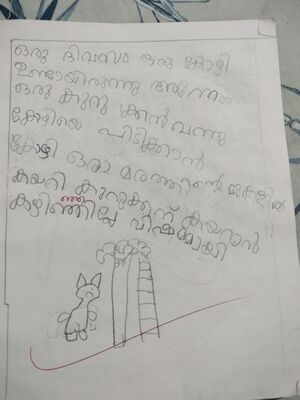 ഒരു ദിവസം ഒരു കോഴി
ഉണ്ടായിരുന്നു അന്നേരം
ഒരു കുറുക്കൻ വന്നു
കോഴിയെ പിടിക്കാൻ
കോഴി ഒരാ മരത്തിന്റെ മുകളിൽ
കയറി കുറുക്കന് കയറാൻ
കഴിഞ്ഞില്ല വിഷമമായി